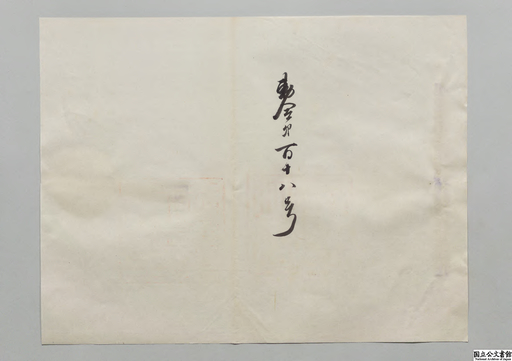 勅令第百十八号
国立公文書館
National Archives of Japan